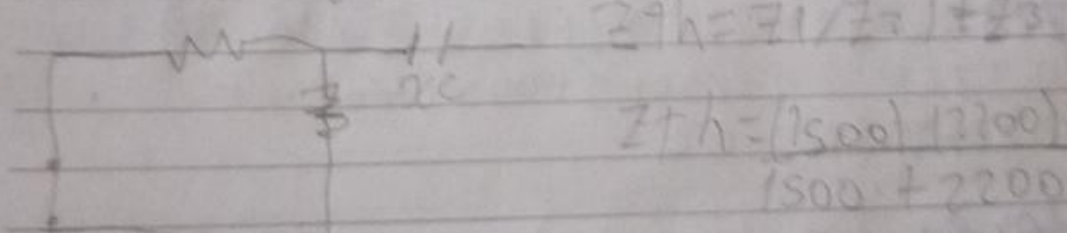 Zth = Z1 // Z2 + Z3
2c
Zth = (1500) (2200)
1500 + 2200